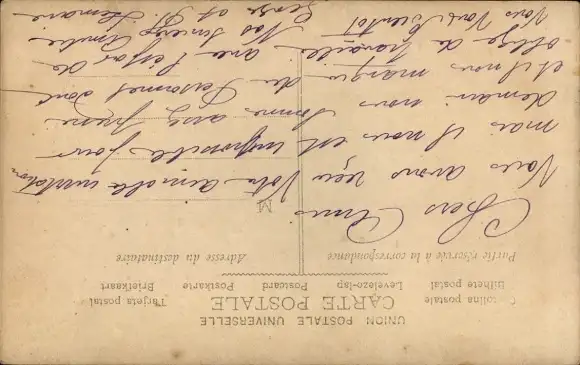 UNION POSTALE UNIVERSELLE
CARTE POSTALE
Cartolina postale Tarjeta postal
Bilhete postal Levelezo-lap Postcard Postkarte Briefkaart
Partie réservée à la correspondance
Adresse du destinataire
M
Chers Amis
Nous avons reçu Votre aimable invitation
mais il nous est impossible pour
demain nous sommes assez
et il nous manque du Personnel donc
obligé de travailler avec l'espoir de
Vous Voir Bientôt Nos Sincères Amitiés
et